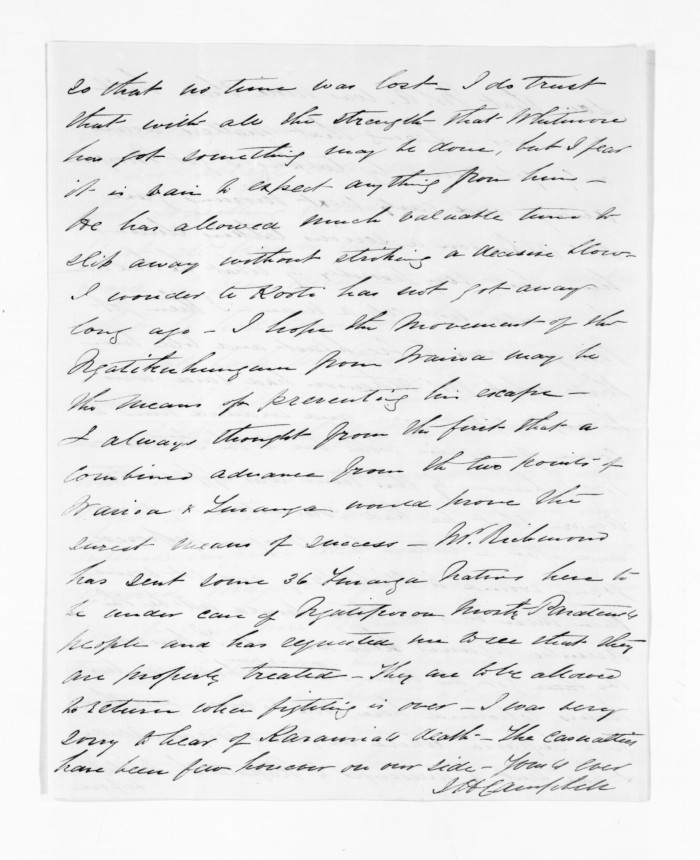 so that no time was lost – I do trust
that with all the strength that Whitmore
has got something may be done, but I fear
it is vain to expect anything from him –
He has allowed much valuable time to
slip away without striking a decisive blow –
I wonder te Kooti has not got away
long ago – I hope the movement of the
Ngatikahungunu from Wairoa may be
the means of preventing his escape –
I always thought from the first that a
combined advance from the two points of
Wairoa & Turanga would prove the
surest means of success – Mr. Richmond
has sent some 36 Turanga Natives here to
be under care of Ngatiporou
people and has requested me to see that they
are properly treated – They are to be allowed
to return when fighting is over – I was very
sorry to hear of Karauria's death – The casualties
have been few however on our side – Yours ever
Campbell